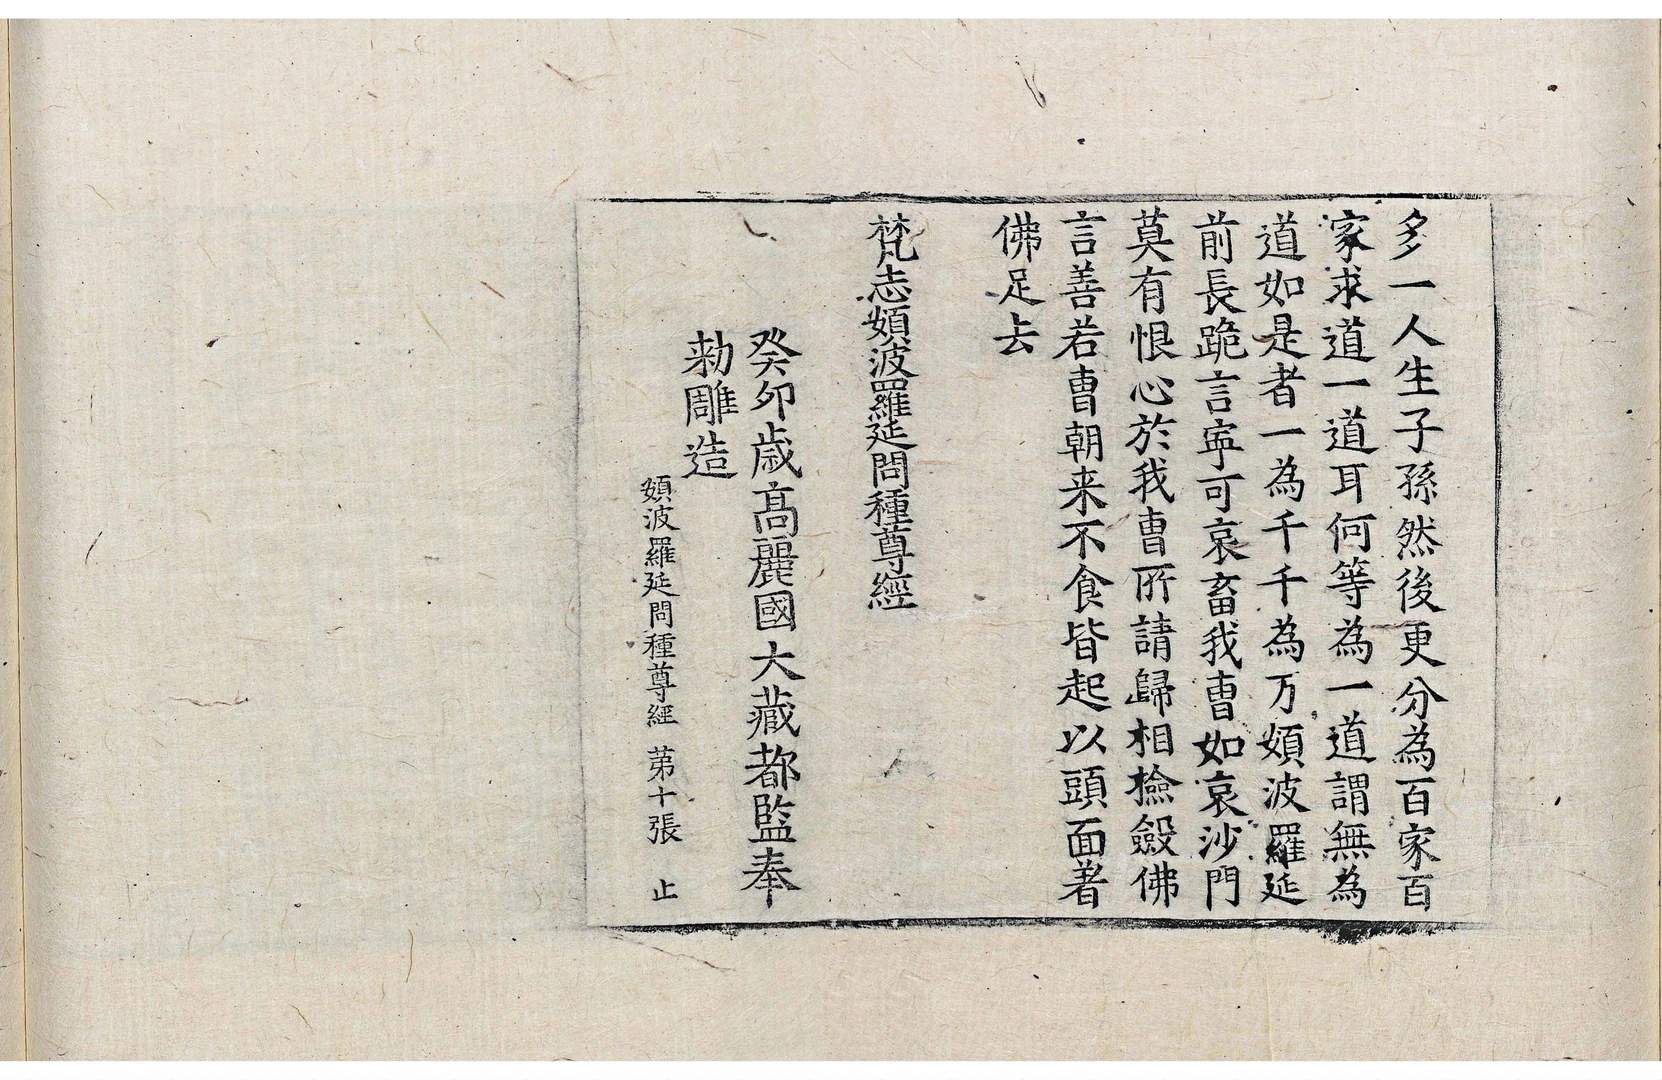 多一人生子孫然後更分為百家百
家求道一道耳何等為一道謂無為
道如是者一為千千為万頞波羅延
前長跪言寜可哀畜我曺如哀沙門
莫有恨心於我曺所請歸相撿斂佛
言善若曺朝来不食皆起以頭面著
佛足去
梵志頞波羅延問種尊經
癸卯歲高麗國大藏都監奉
勑雕造
頞波羅延問種尊經 苐十張 止